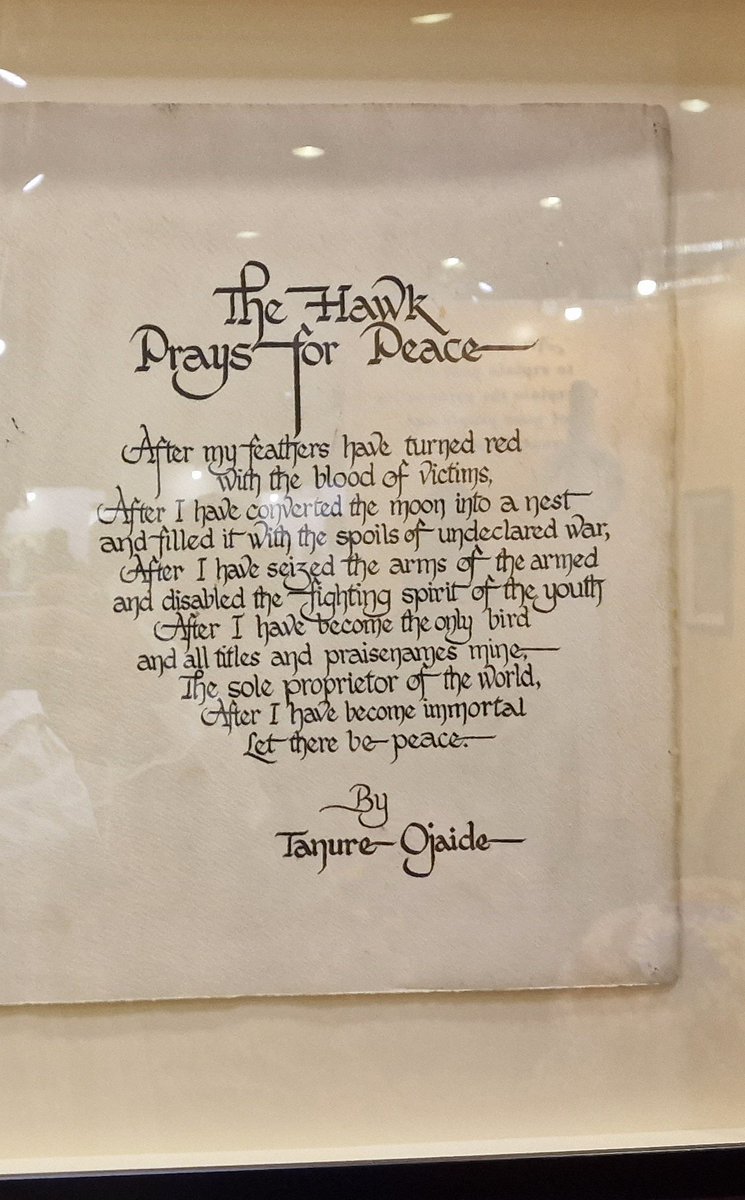 The Hawk
Prays for Peace
After my feathers have turned red
with the blood of victims,
After I have converted the moon into a nest
and filled it with the spoils of undeclared war,
After I have seized the arms of the armed
and disabled the fighting spirit of the youth
After I have become the only bird
and all titles and praisenames mine,
The sole proprietor of the world,
After I have become immortal
Let there be peace.
By
Tanure Ojaide